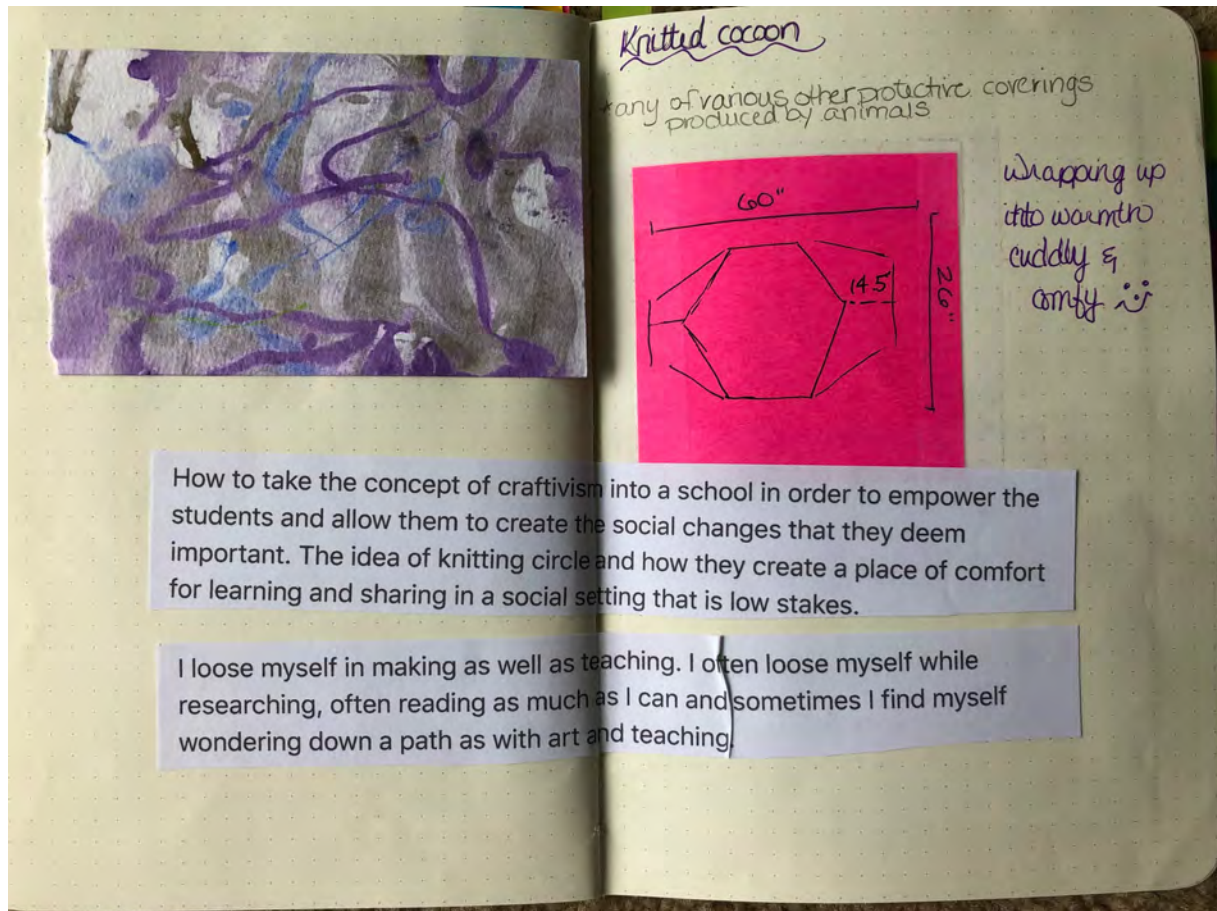 Knitted cocoon
*any of various other protective coverings
produced by animals
60"
14.5
26"
wrapping up
into warmth
cuddly &
comfy
How to take the concept of craftivism into a school in order to empower the
students and allow them to create the social changes that they deem
important. The idea of knitting circle and how they create a place of comfort
for learning and sharing in a social setting that is low stakes.
I loose myself in making as well as teaching. I often loose myself while
researching, often reading as much as I can and sometimes I find myself
wondering down a path as with art and teaching.